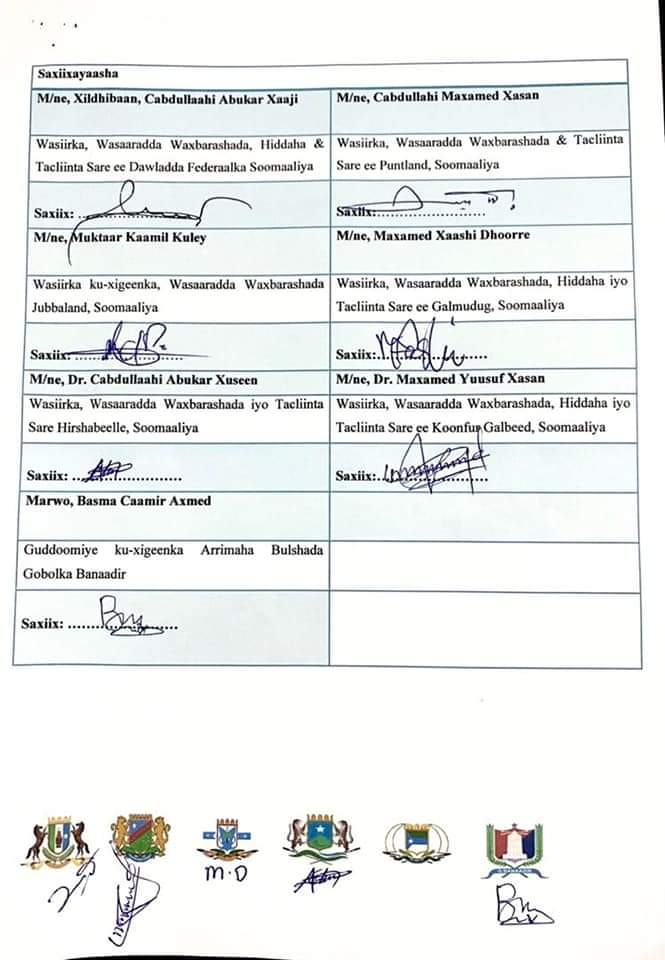 Saxiixayaasha
M/ne, Xildhibaan, Cabdullaahi Abukar Xaaji
Wasiirka, Wasaaradda Waxbarashada, Hiddaha &
Tacliinta Sare ee Dawladda Federaalka Soomaaliya
Saxiix:
M/ne, Cabdullahi Maxamed Xasan
Wasiirka, Wasaaradda Waxbarashada & Tacliinta
Sare ee Puntland, Soomaaliya
Saxiix:
M/ne, Muktaar Kaamil Kuley
Wasiirka ku-xigeenka, Wasaaradda Waxbarashada
Jubbaland, Soomaaliya
Saxiix:
M/ne, Maxamed Xaashi Dhoorre
Wasiirka, Wasaaradda Waxbarashada, Hiddaha iyo
Tacliinta Sare ee Galmudug, Soomaaliya
Saxiix:
M/ne, Dr. Cabdullaahi Abukar Xuseen
Wasiirka, Wasaaradda Waxbarashada iyo Tacliinta
Sare Hirshabeelle, Soomaaliya
Saxiix:
M/ne, Dr. Maxamed Yuusuf Xasan
Wasiirka, Wasaaradda Waxbarashada, Hiddaha iyo
Tacliinta Sare ee Koonfur Galbeed, Soomaaliya
Saxiix:
Marwo, Basma Caamir Axmed
Guddoomiye ku-xigeenka Arrimaha Bulshada
Gobolka Banaadir
Saxiix:
M.D